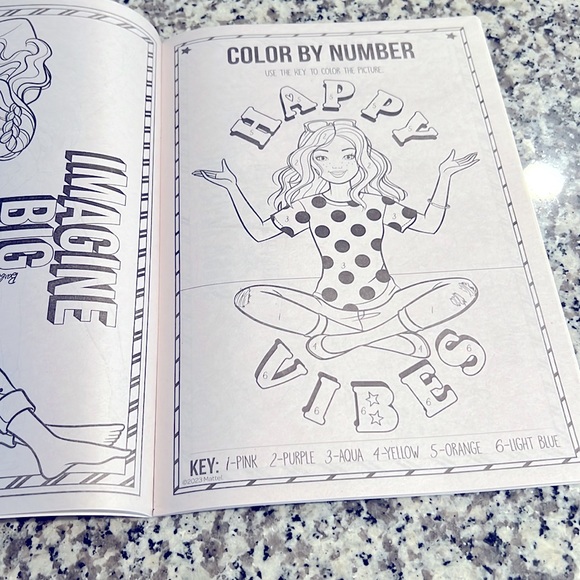 IMAGINE
BIG
Barbie
COLOR BY NUMBER
USE THE KEY TO COLOR THE PICTURE.
HAPPY
VIBES
6
6
6
6
6
KEY: 1-PINK 2-PURPLE 3-AQUA 4-YELLOW 5-ORANGE 6-LIGHT BLUE
©2023 Mattel